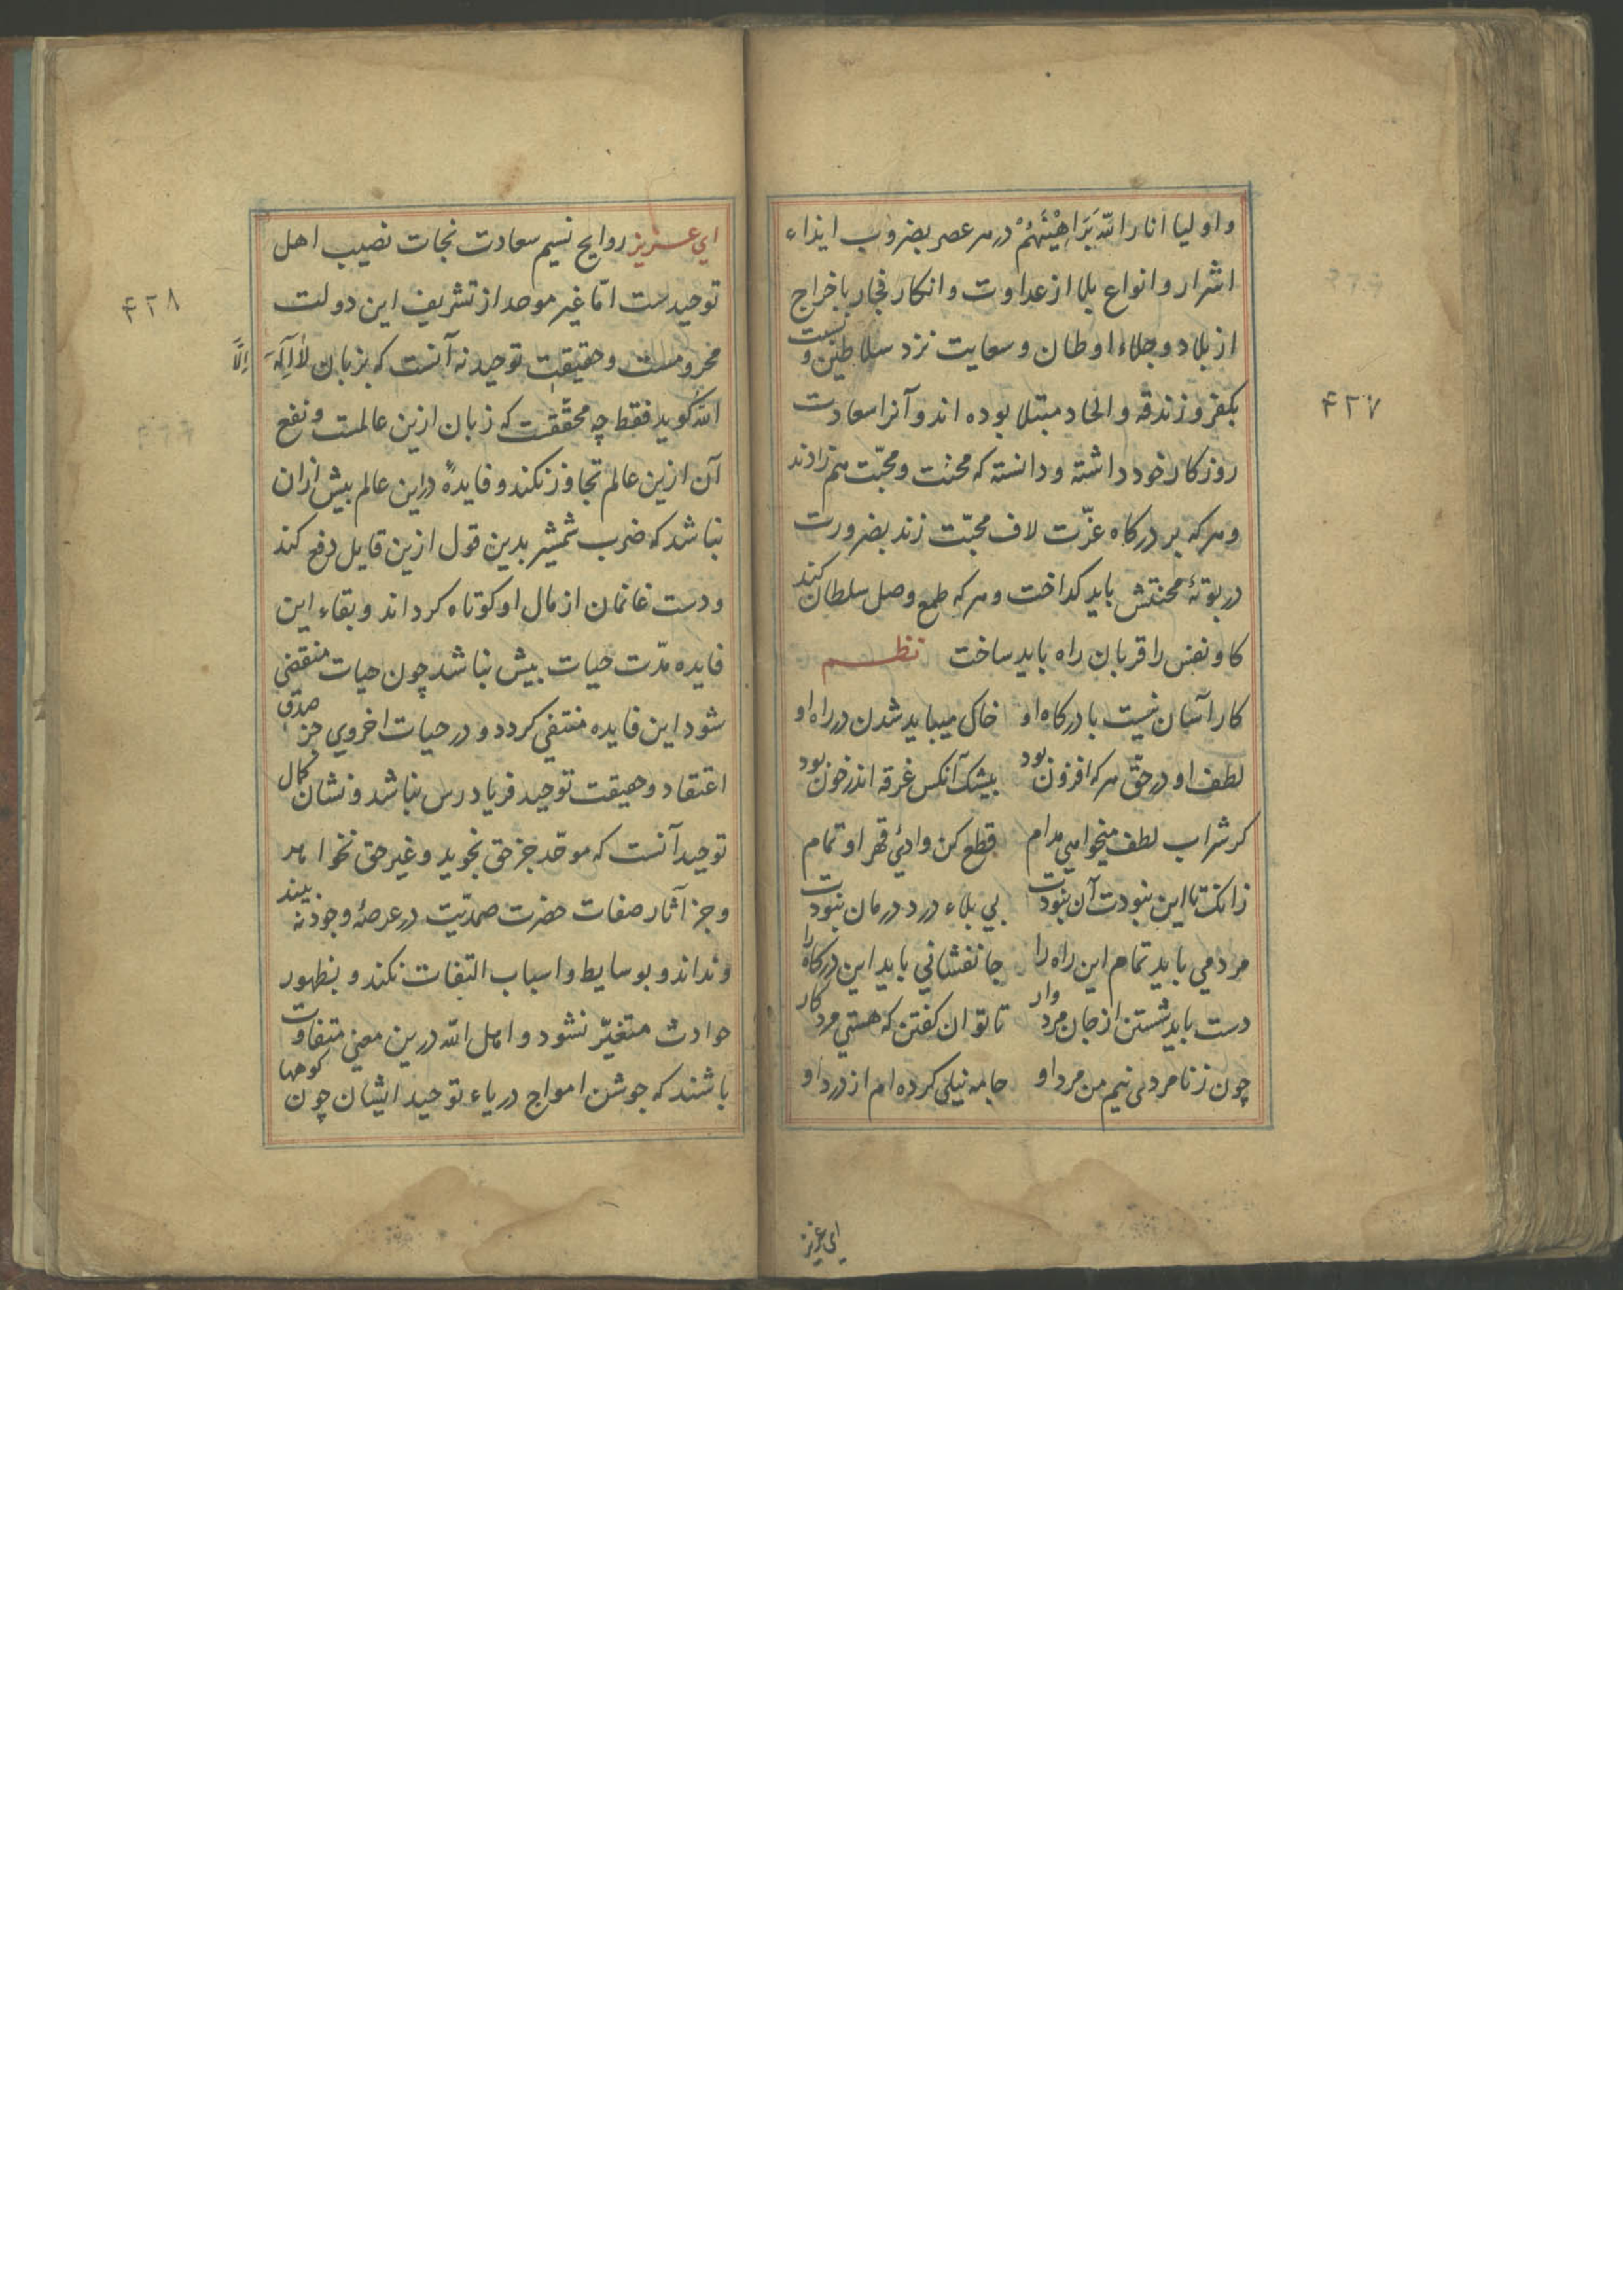 و اولیا انار الله بَرَاهِیْنَهُمْ در هر عصر بضروب ایذاء
اشرار و انواع بلا از عداوت و انکار فجار باخراج
از بلاد و جلاء اوطان و سعایت نزد سلاطین و نسبت
بکفر و زندقه و الحاد مبتلا بوده اند و آنرا سعادت
روزکار خود داشته و دانسته که محنت و محبّت هم زادند
و هر که بر درکاه عزّت لاف محبّت زند بضرورت
در بوتهٔ محنتش باید کداخت و هر که طمع وصل سلطان کند
کاو نفس را قربان راه باید ساخت نظم
کار آسان نیست با درکاه او خاک میباید شدن در راه او
لطف او در حق هر که افزون بود بیشک آنکس غرقه اندر خون بود
کر شراب لطف میخواهی مدام قطع کن وادئ قهر او تمام
زانک تا این نبودت آن نبودت بی بلاء درد درمان نبودت
مردمی باید تمام این راه را جانفشانی باید این درکاه را
دست باید شستن از جان مرد وار تا توان کفتن که هستی مرد کار
چون زنا مردی نیم من مرد او جامه نیلی کرده ام از درد او
ای عزیز
۴۲۷
ای عزیز روایح نسیم سعادت نجات نصیب اهل
توحیدست امّا غیر موحد از تشریف این دولت
محرومست و حقیقت توحید نه آنست که بزبان لَا اِلَهَ اِلَّا
اللّه کوید فقط چه محقّقست که زبان ازین عالمست و نفع
آن ازین عالم تجاوز نکند و فایدهٔ در این عالم بیش ازان
نباشد که ضرب شمشیر بدین قول ازین قایل دفع کند
و دست غانمان از مال او کوتاه کرداند و بقاء این
فایده مدّت حیات بیش نباشد چون حیات منقضی
شود این فایده منتفی کردد و در حیات اخروی جز صدق
اعتقاد و حقیقت توحید فریاد رس نباشد و نشان کمال
توحید آنست که موحّد جز حق نجوید و غیر حق نخواهد
و جز آثار صفات حضرت صمدیّت در عرصهٔ وجود نه بیند
و نداند و بوسایط و اسباب التفات نکند و بظهور
حوادث متغیّر نشود و اهل الله درین معنی متفاوت
باشند که جوشن امواج دریاء توحید ایشان چون کوهها
۴۲۸